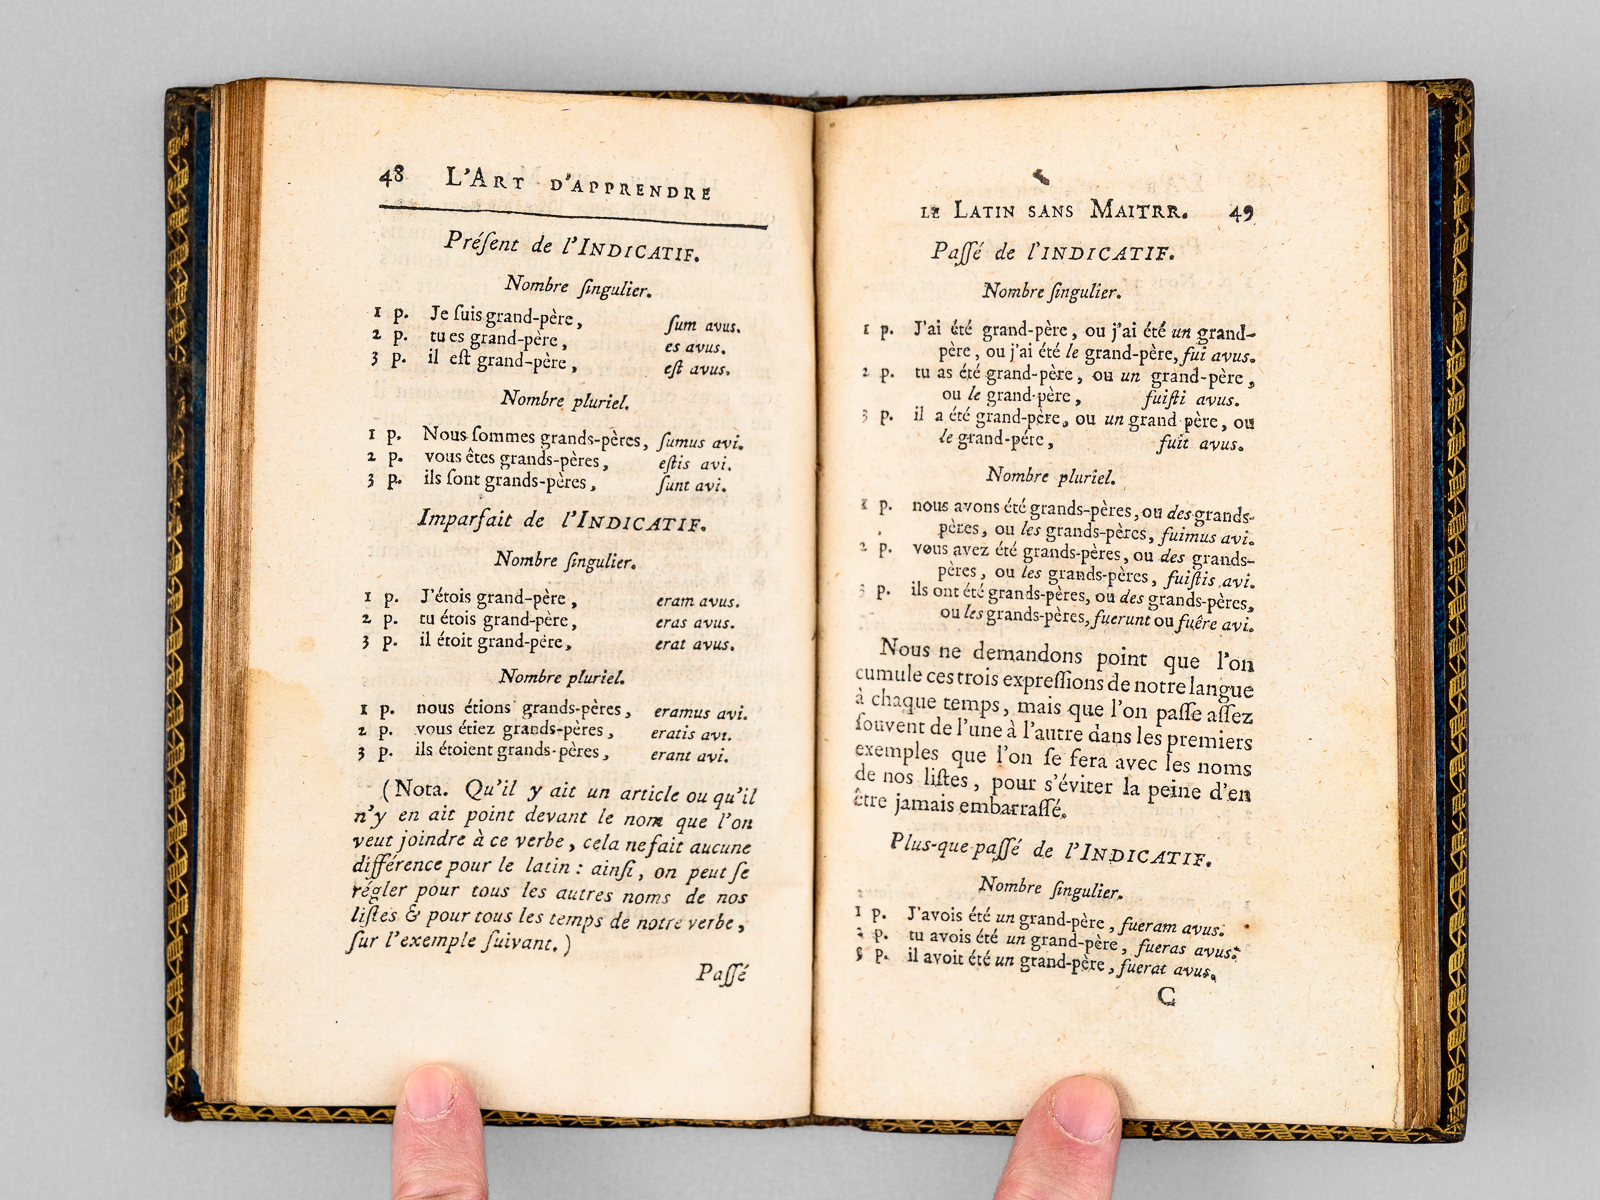 48 L'ART D'APPRENDRE
Préſent de l'INDICATIF.
Nombre ſingulier.
1 p. Je ſuis grand-père, ſum avus.
2 p. tu es grand-père, es avus.
3 p. il eſt grand-père, eſt avus.
Nombre pluriel.
1 p. Nous ſommes grands-pères, ſumus avi.
2 p. vous êtes grands-pères, eſtis avi.
3 p. ils ſont grands-pères, ſunt avi.
Imparfait de l'INDICATIF.
Nombre ſingulier.
1 p. J'étois grand-père, eram avus.
2 p. tu étois grand-père, eras avus.
3 p. il étoit grand-père, erat avus.
Nombre pluriel.
1 p. nous étions grands-pères, eramus avi.
2 p. vous étiez grands-pères, eratis avi.
3 p. ils étoient grands-pères, erant avi.
(Nota. Qu'il y ait un article ou qu'il
n'y en ait point devant le nom que l'on
veut joindre à ce verbe, cela ne fait aucune
différence pour le latin : ainſi, on peut ſe
régler pour tous les autres noms de nos
liſtes & pour tous les temps de notre verbe,
ſur l'exemple ſuivant.)
Paſſé
LE LATIN SANS MAITRR. 49
Paſſé de l'INDICATIF.
Nombre ſingulier.
1 p. J'ai été grand-père, ou j'ai été un grand-
père, ou j'ai été le grand-père, fui avus.
2 p. tu as été grand-père, ou un grand-père,
ou le grand-père, fuiſti avus.
3 p. il a été grand-père, ou un grand père, ou
le grand-pére, fuit avus.
Nombre pluriel.
1 p. nous avons été grands-pères, ou des grands-
pères, ou les grands-pères, fuimus avi.
2 p. vous avez été grands-pères, ou des grands-
pères, ou les grands-pères, fuiſtis avi.
3 p. ils ont été grands-pères, ou des grands-pères,
ou les grands-pères, fuerunt ou fuêre avi.
Nous ne demandons point que l'on
cumule ces trois expreſſions de notre langue
à chaque temps, mais que l'on paſſe aſſez
ſouvent de l'une à l'autre dans les premiers
exemples que l'on ſe fera avec les noms
de nos liſtes, pour s'éviter la peine d'en
être jamais embarraſſé.
Plus-que-paſſé de l'INDICATIF.
Nombre ſingulier.
1 p. J'avois été un grand-père, fueram avus.
2 p. tu avois été un grand-père, fueras avus.
3 p. il avoit été un grand-père, fuerat avus.
C